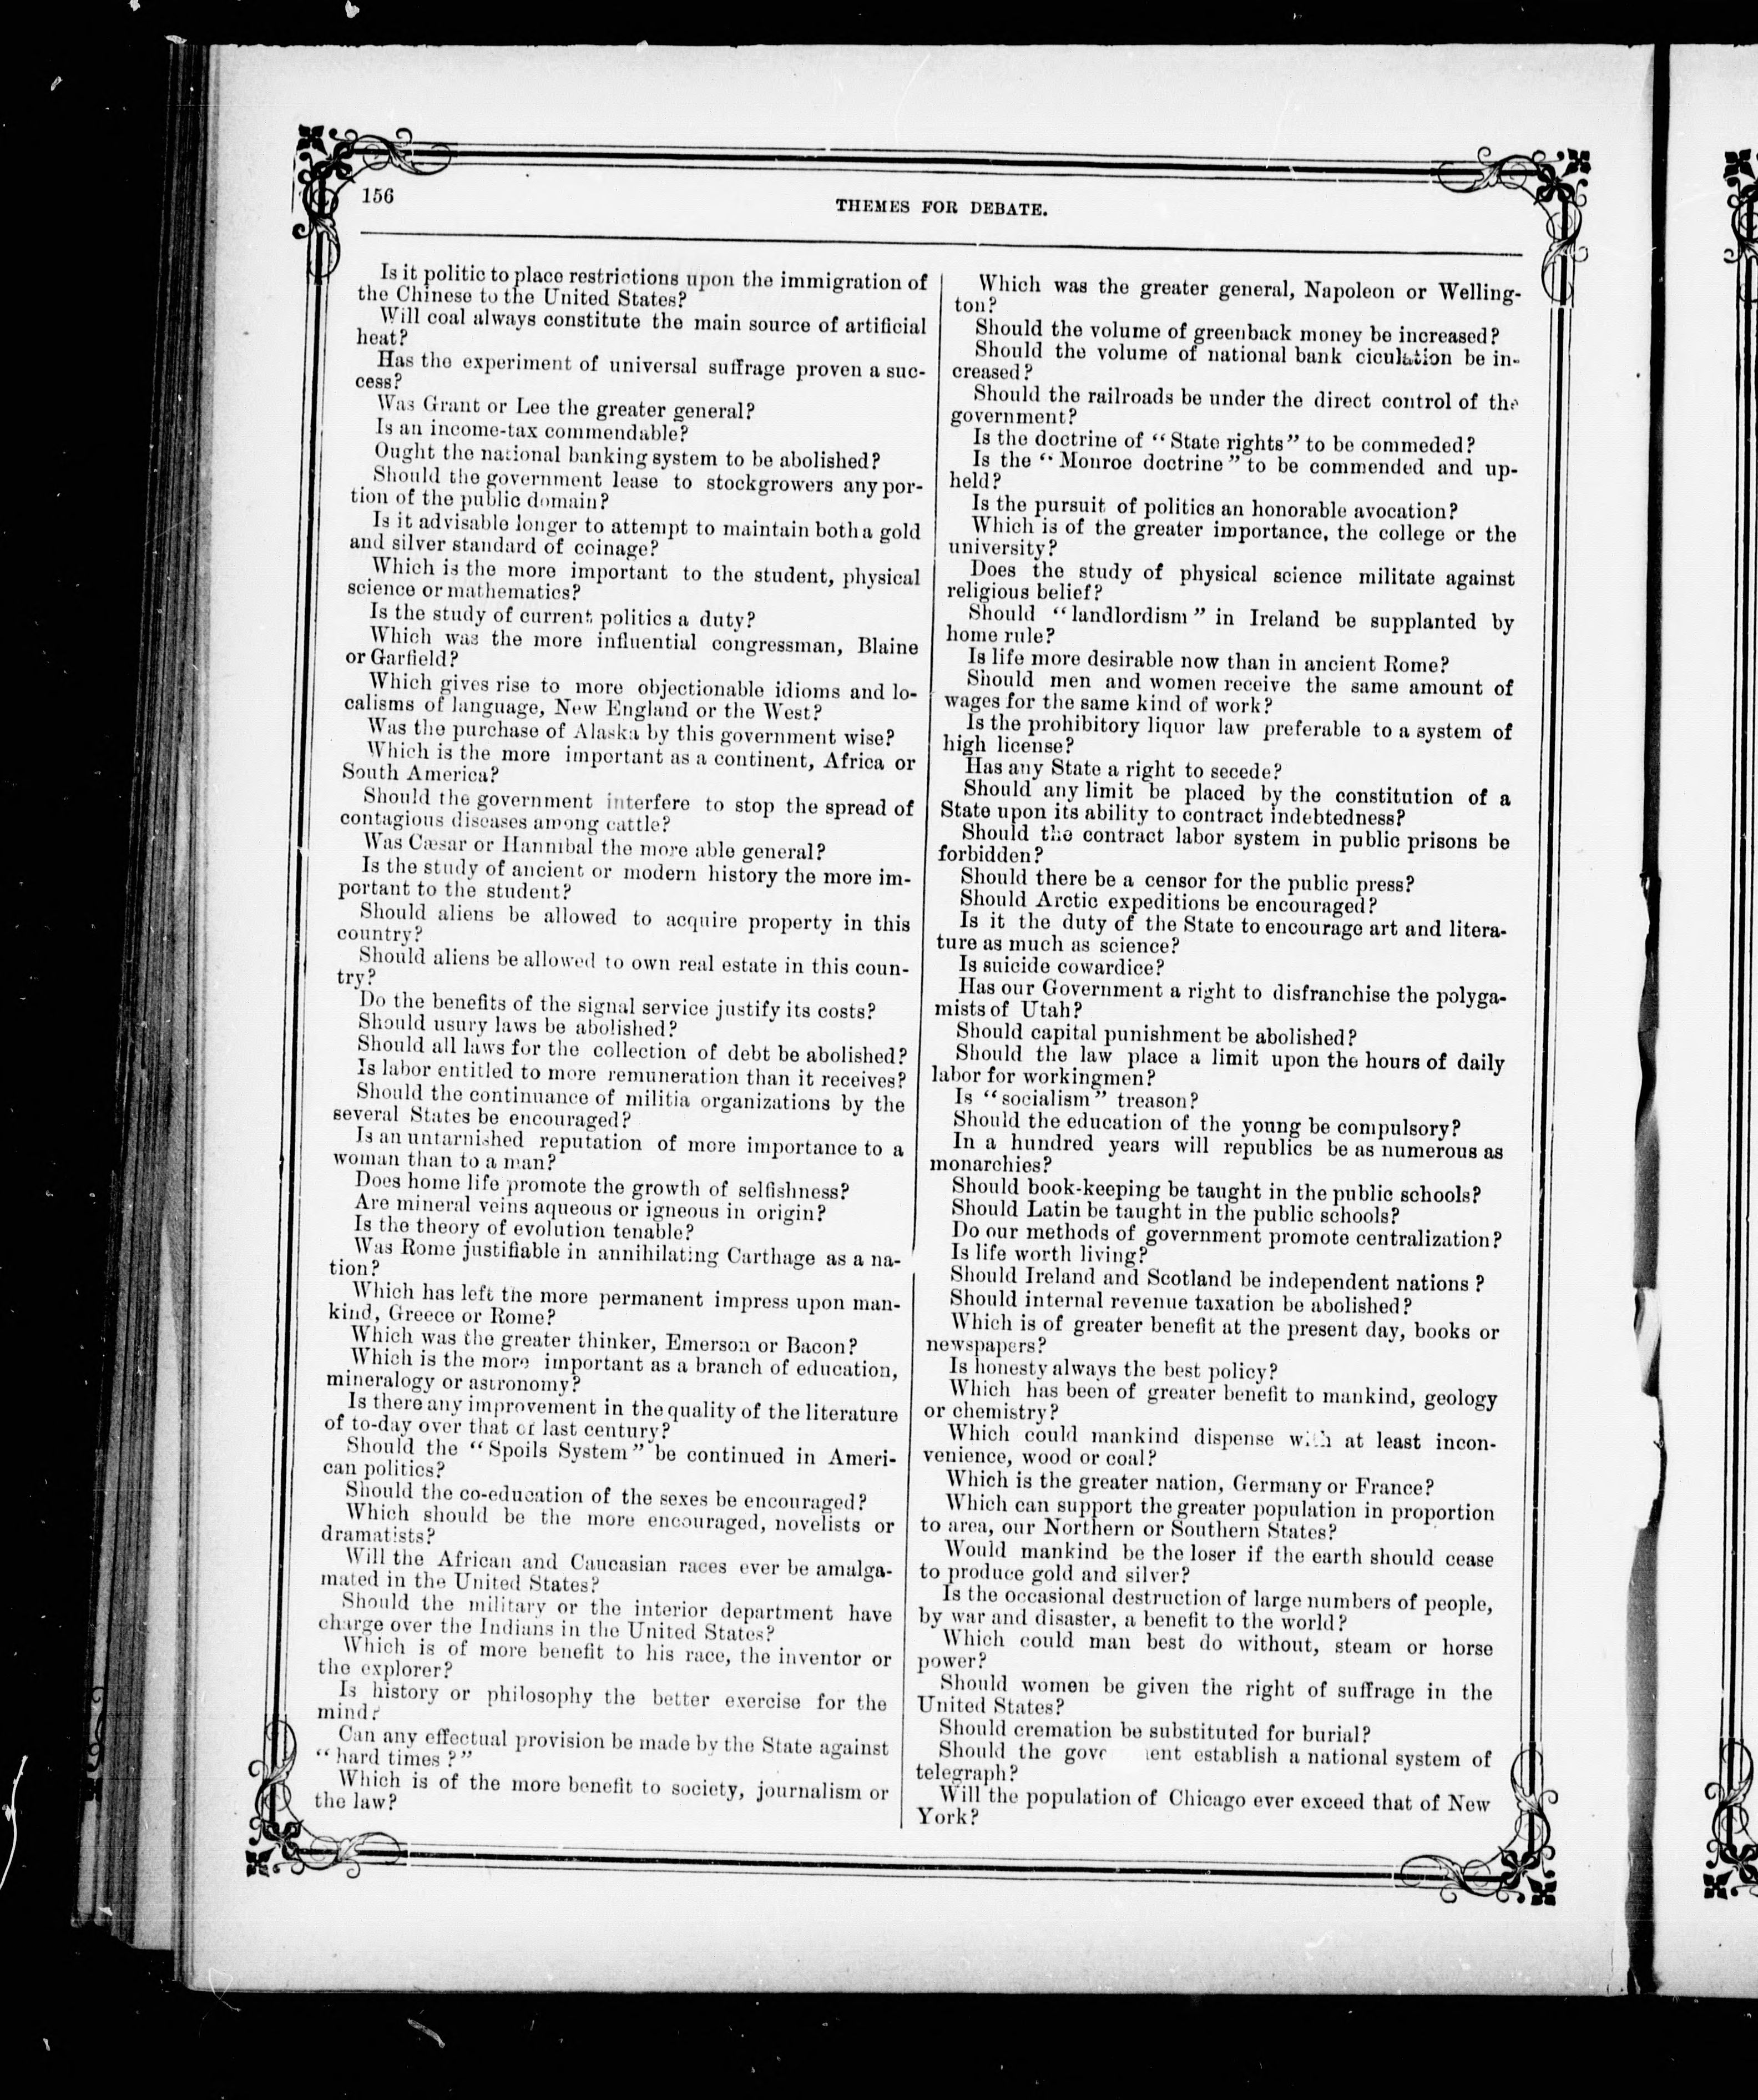 156
THEMES FOR DEBATE.
Is it politic to place restrictions upon the immigration of
the Chinese to the United States?
Will coal always constitute the main source of artificial
heat?
Has the experiment of universal suffrage proven a suc-
cess?
Was Grant or Lee the greater general?
Is an income-tax commendable?
Ought the national banking system to be abolished?
Should the government lease to stockgrowers any por-
tion of the public domain?
Is it advisable longer to attempt to maintain both a gold
and silver standard of coinage?
Which is the more important to the student, physical
science or mathematics?
Is the study of current politics a duty?
Which was the more influential congressman, Blaine
or Garfield?
Which gives rise to more objectionable idioms and lo-
calisms of language, New England or the West?
Was the purchase of Alaska by this government wise?
Which is the more important as a continent, Africa or
South America?
Should the government interfere to stop the spread of
contagious diseases among cattle?
Was Cæsar or Hannibal the more able general?
Is the study of ancient or modern history the more im-
portant to the student?
Should aliens be allowed to acquire property in this
country?
Should aliens be allowed to own real estate in this coun-
try?
Do the benefits of the signal service justify its costs?
Should usury laws be abolished?
Should all laws for the collection of debt be abolished?
Is labor entitled to more remuneration than it receives?
Should the continuance of militia organizations by the
several States be encouraged?
Is an untarnished reputation of more importance to a
woman than to a man?
Does home life promote the growth of selfishness?
Are mineral veins aqueous or igneous in origin?
Is the theory of evolution tenable?
Was Rome justifiable in annihilating Carthage as a na-
tion?
Which has left the more permanent impress upon man-
kind, Greece or Rome?
Which was the greater thinker, Emerson or Bacon?
Which is the more important as a branch of education,
mineralogy or astronomy?
Is there any improvement in the quality of the literature
of to-day over that of last century?
Should the "Spoils System" be continued in Ameri-
can politics?
Should the co-education of the sexes be encouraged?
Which should be the more encouraged, novelists or
dramatists?
Will the African and Caucasian races ever be amalga-
mated in the United States?
Should the military or the interior department have
charge over the Indians in the United States?
Which is of more benefit to his race, the inventor or
the explorer?
Is history or philosophy the better exercise for the
mind?
Can any effectual provision be made by the State against
"hard times?"
Which is of the more benefit to society, journalism or
the law?
Which was the greater general, Napoleon or Welling-
ton?
Should the volume of greenback money be increased?
Should the volume of national bank ciculation be in-
creased?
Should the railroads be under the direct control of the
government?
Is the doctrine of "State rights" to be commeded?
Is the "Monroe doctrine" to be commended and up-
held?
Is the pursuit of politics an honorable avocation?
Which is of the greater importance, the college or the
university?
Does the study of physical science militate against
religious belief?
Should "landlordism" in Ireland be supplanted by
home rule?
Is life more desirable now than in ancient Rome?
Should men and women receive the same amount of
wages for the same kind of work?
Is the prohibitory liquor law preferable to a system of
high license?
Has any State a right to secede?
Should any limit be placed by the constitution of a
State upon its ability to contract indebtedness?
Should the contract labor system in public prisons be
forbidden?
Should there be a censor for the public press?
Should Arctic expeditions be encouraged?
Is it the duty of the State to encourage art and litera-
ture as much as science?
Is suicide cowardice?
Has our Government a right to disfranchise the polyga-
mists of Utah?
Should capital punishment be abolished?
Should the law place a limit upon the hours of daily
labor for workingmen?
Is "socialism" treason?
Should the education of the young be compulsory?
In a hundred years will republics be as numerous as
monarchies?
Should book-keeping be taught in the public schools?
Should Latin be taught in the public schools?
Do our methods of government promote centralization?
Is life worth living?
Should Ireland and Scotland be independent nations?
Should internal revenue taxation be abolished?
Which is of greater benefit at the present day, books or
newspapers?
Is honesty always the best policy?
Which has been of greater benefit to mankind, geology
or chemistry?
Which could mankind dispense with at least incon-
venience, wood or coal?
Which is the greater nation, Germany or France?
Which can support the greater population in proportion
to area, our Northern or Southern States?
Would mankind be the loser if the earth should cease
to produce gold and silver?
Is the occasional destruction of large numbers of people,
by war and disaster, a benefit to the world?
Which could man best do without, steam or horse
power?
Should women be given the right of suffrage in the
United States?
Should cremation be substituted for burial?
Should the establish a national system of
telegraph?
Will the population of Chicago ever exceed that of New
York?